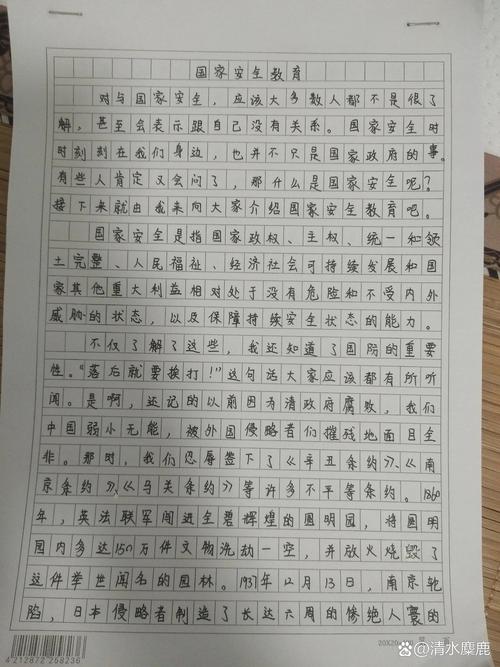 国家安全教育
对与国家安全，应该大多数人都不是很了
解，甚至会表示跟自己没有关系。国家安全时
时刻刻在我们身边，也并不只是国家政府的事。
有些人肯定又会问了，那什么是国家安全呢？
接下来就由我来向大家介绍国家安全教育吧。
国家安全是指国家政权、主权、统一和领
土完整、人民福祉、经济社会可持续发展和国
家其他重大利益相对处于没有危险和不受内外
威胁的状态，以及保障持续安全状态的能力。
不仅了解了这些，我还知道了国防的重要
性。“落后就要挨打！”这句话大家应该都有所听
闻。是啊，还记的以前因为清政府腐败，我们
中国弱小无能，被外国侵略者们摧残地面目全
非。那时，我们忍辱签下了《辛丑条约》、《南
京条约》、《马关条约》等许多不平等条约。1860
年，英法联军闯进金碧辉煌的圆明园，将圆明
园内多达150万件文物洗劫一空，并放火烧毁了
这件举世闻名的园林。1937年12月13日，南京沦
陷，日本侵略者制造了长达六周的惨绝人寰的
4212872268236
20X20
头条 @清水麋鹿